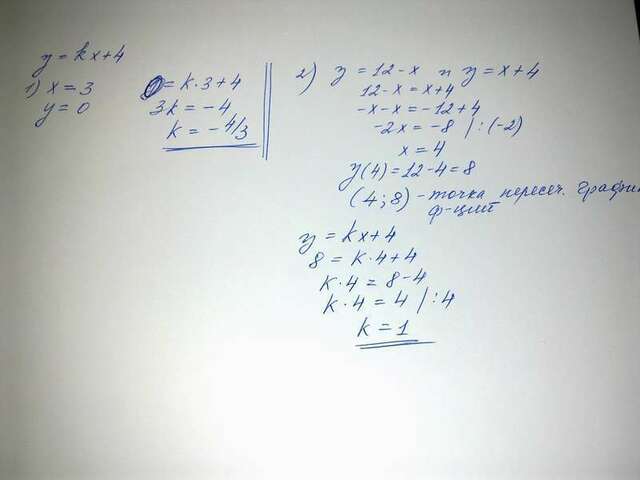 y = kx+4
1) x = 3
y = 0
0 = k·3+4
3k = -4
k = -4/3
2) y = 12-x и y = x+4
12-x = x+4
-x-x = -12+4
-2x = -8 /:(-2)
x = 4
y(4) = 12-4 = 8
(4;8) - точка пересеч. графи
ф-ций
y = kx+4
8 = k·4+4
k·4 = 8-4
k·4 = 4 /:4
k = 1